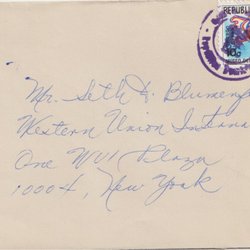 REPUBL
10¢
Mr. Seth D. Blumenf
Western Union Interna
One WUI Plaza
10004, New York